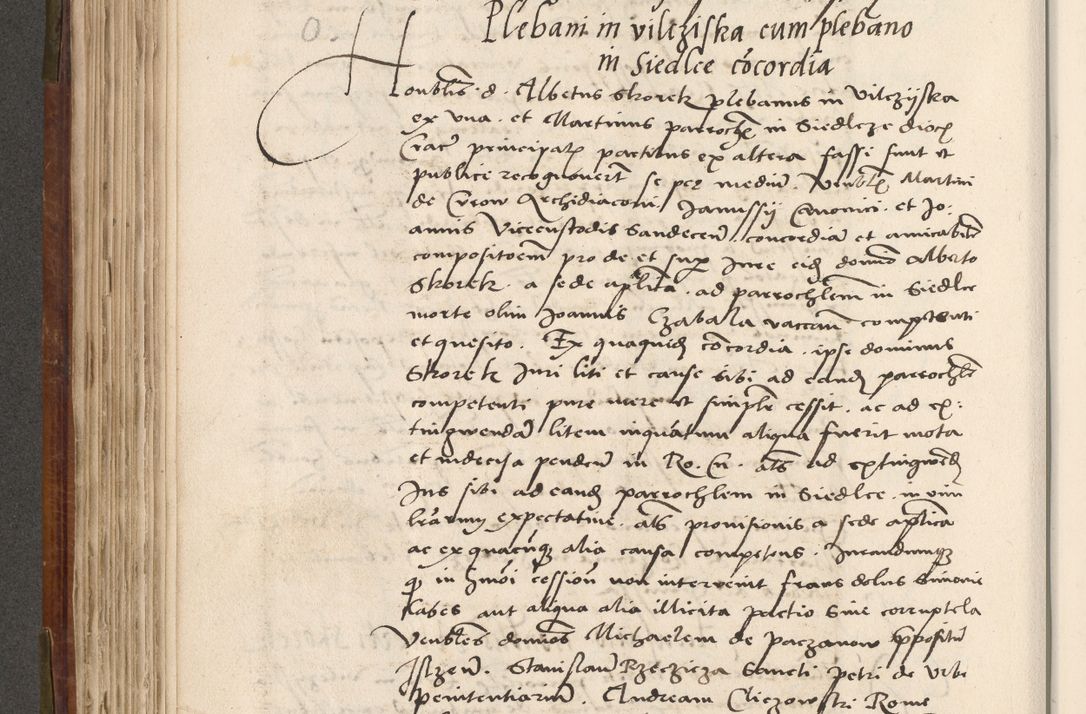 Plebani in vilcziska cum plebano
in Siedlce cōcordia
Honbles d. Albertus Skorek plebanus in Vilczyska
ex vna et Martinus parroch in Siedlcze dioc
Crac principales partibus ex altera fassi sunt et
publice recognouerūt se per mediū Venbl Martini
de Crow Archidiaconi Janussij Canonici et Jo-
annis Vicecustodis Sandeceñ concordiā et amicabilē
compositoem pro de et super Jure eid domino Alberto
Skorek a sede aplica ad parrochlem in Siedlce
morte olim Joannis Czabala vacañ competenti
et quesito. Ex quaquid cōcordia ipse dominus
Skorek Juri liti et cause sibi ad eand parrochlē
competenti pure mere et simplr cessit ac ad ex-
tingwendā litem inquātum aliqua fuerit mota
et indecisa pendeñ in Ro. Cu. als ad extingwend
Jus sibi ad eand parrochlem in Siedlce in vim
lrarum expectatiue als prouisionis a sede aplica
ac ex quacūq alia causa competens Jurandumq
q in hmōi cessioñ non interuenit fraus dolus Simonie
labes aut aliqua alia illicita pactio siue corruptela
Venbles dominos Michaelem de paczanow ppositū
Jlzeñ. Stanislaū Rzeczicza Sancti petri de Vrbe
penitentiariū. Andream Cliczowski Rome